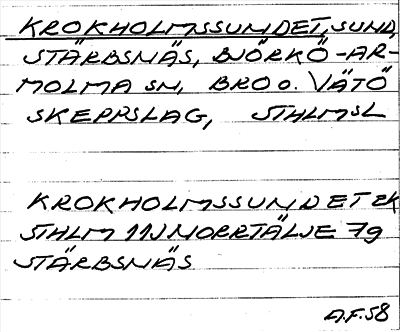 KROKHOLMSSUNDET, SUND,
STÄRBSNÄS, BJÖRKÖ-AR-
MOLMA SN, BRO O. VÄTÖ
SKEPPSLAG, STHLMSL
KROKHOLMSSUNDET EK
STHLM 11J NORRTÄLJE 7g
STÄRBSNÄS
A.F. 58